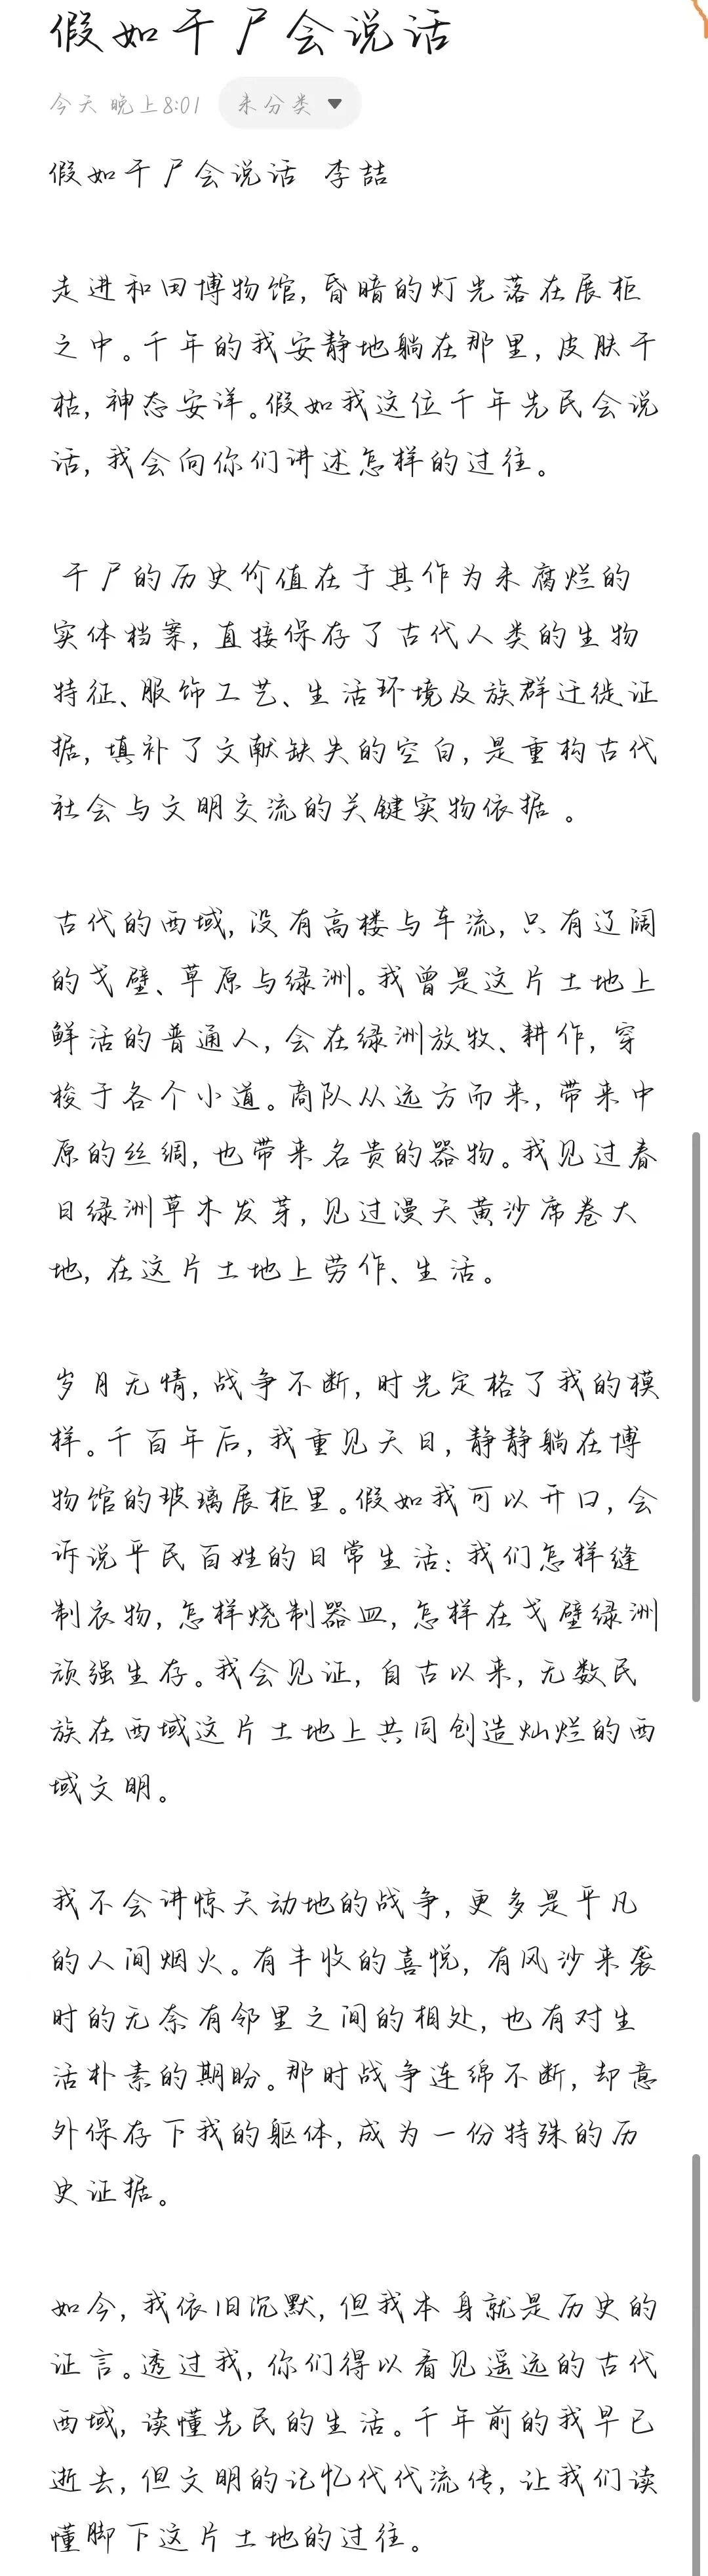 假如干尸会说话
今天 晚上8:01 未分类
假如干尸会说话 李喆
走进和田博物馆, 昏暗的灯光落在展柜
之中。千年的我安静地躺在那里, 皮肤干
枯, 神态安详。假如我这位千年先民会说
话, 我会向你们讲述怎样的过往。
干尸的历史价值在于其作为未腐烂的
实体档案, 直接保存了古代人类的生物
特征、服饰工艺、生活环境及族群迁徙证
据, 填补了文献缺失的空白, 是重构古代
社会与文明交流的关键实物依据 。
古代的西域, 没有高楼与车流, 只有辽阔
的戈壁、草原与绿洲。我曾是这片土地上
鲜活的普通人, 会在绿洲放牧、耕作, 穿
梭于各个小道。商队从远方而来, 带来中
原的丝绸, 也带来名贵的器物。我见过春
日绿洲草木发芽, 见过漫天黄沙席卷大
地, 在这片土地上劳作、生活。
岁月无情, 战争不断, 时光定格了我的模
样。千百年后, 我重见天日, 静静躺在博
物馆的玻璃展柜里。假如我可以开口, 会
诉说平民百姓的日常生活: 我们怎样缝
制衣物, 怎样烧制器皿, 怎样在戈壁绿洲
顽强生存。我会见证, 自古以来, 无数民
族在西域这片土地上共同创造灿烂的西
域文明。
我不会讲惊天动地的战争, 更多是平凡
的人间烟火。有丰收的喜悦, 有风沙来袭
时的无奈有邻里之间的相处, 也有对生
活朴素的期盼。那时战争连绵不断, 却意
外保存下我的躯体, 成为一份特殊的历
史证据。
如今, 我依旧沉默, 但我本身就是历史的
证言。透过我, 你们得以看见遥远的古代
西域, 读懂先民的生活。千年前的我早已
逝去, 但文明的记忆代代流传, 让我们读
懂脚下这片土地的过往。